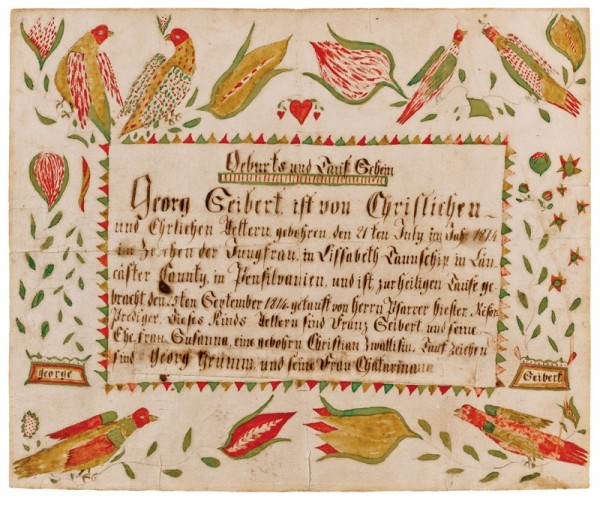 Geburts und Tauf Schein
Georg Seibert, ist von Christlichen
und Ehrlichen Aeltern, gebohren, den 21ten July im Jahr 1814
im Zeichen der Jungfrau, in Lissabeth Taunschip, in Lan
caster County, in Pensilvanien, und ist, zur heiligen Taufe ge
bracht, den 25ten September 1814, getauft von Herrn Pfarrer Hiester, Refor
Prediger, Dieses Kinds Aeltern sind Franz Seibert, und seine
Ehe frau Susanna, eine gebohrn Christian Tauf zeichen
sind Georg Grumm, und seine Frau Chatarinana
george
Seibert